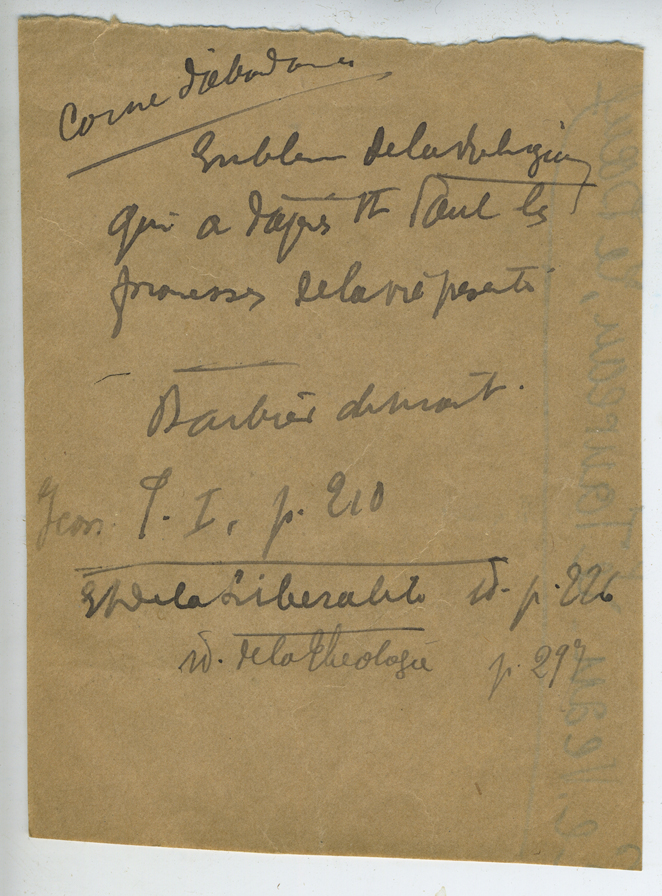 Corne d'abondance
Emblème de la Religion
qui a d'après St Paul les
promesses de la vie présente
Barbier de Mont.
Icon. T. I, p. 210
Et de la Libéralité id. p. 226
id. de la Théologie p. 297